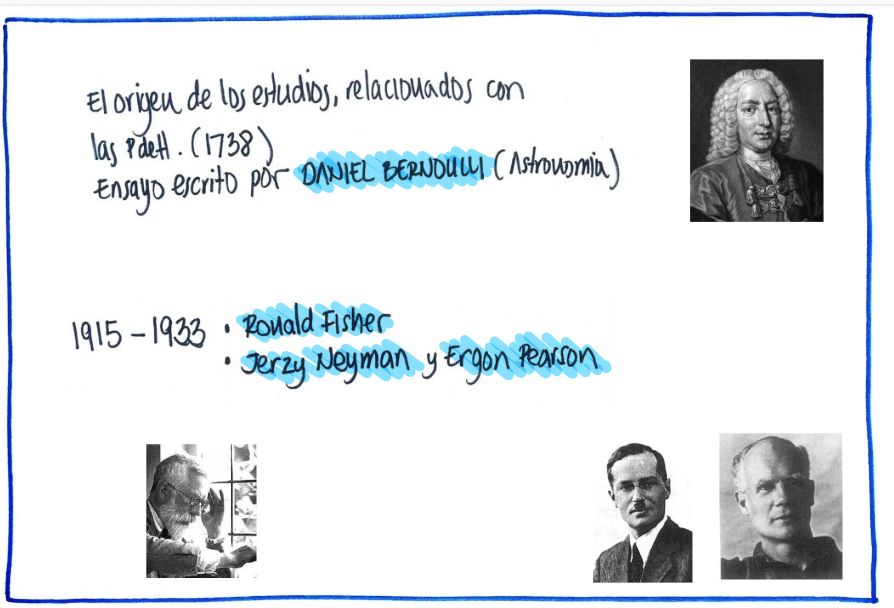 El origen de los estudios, relacionados con
las PdeH. (1738)
Ensayo escrito por DANIEL BERNOULLI (Astronomia)
1915-1933 • Ronald Fisher
• Jerzy Neyman y Ergon Pearson